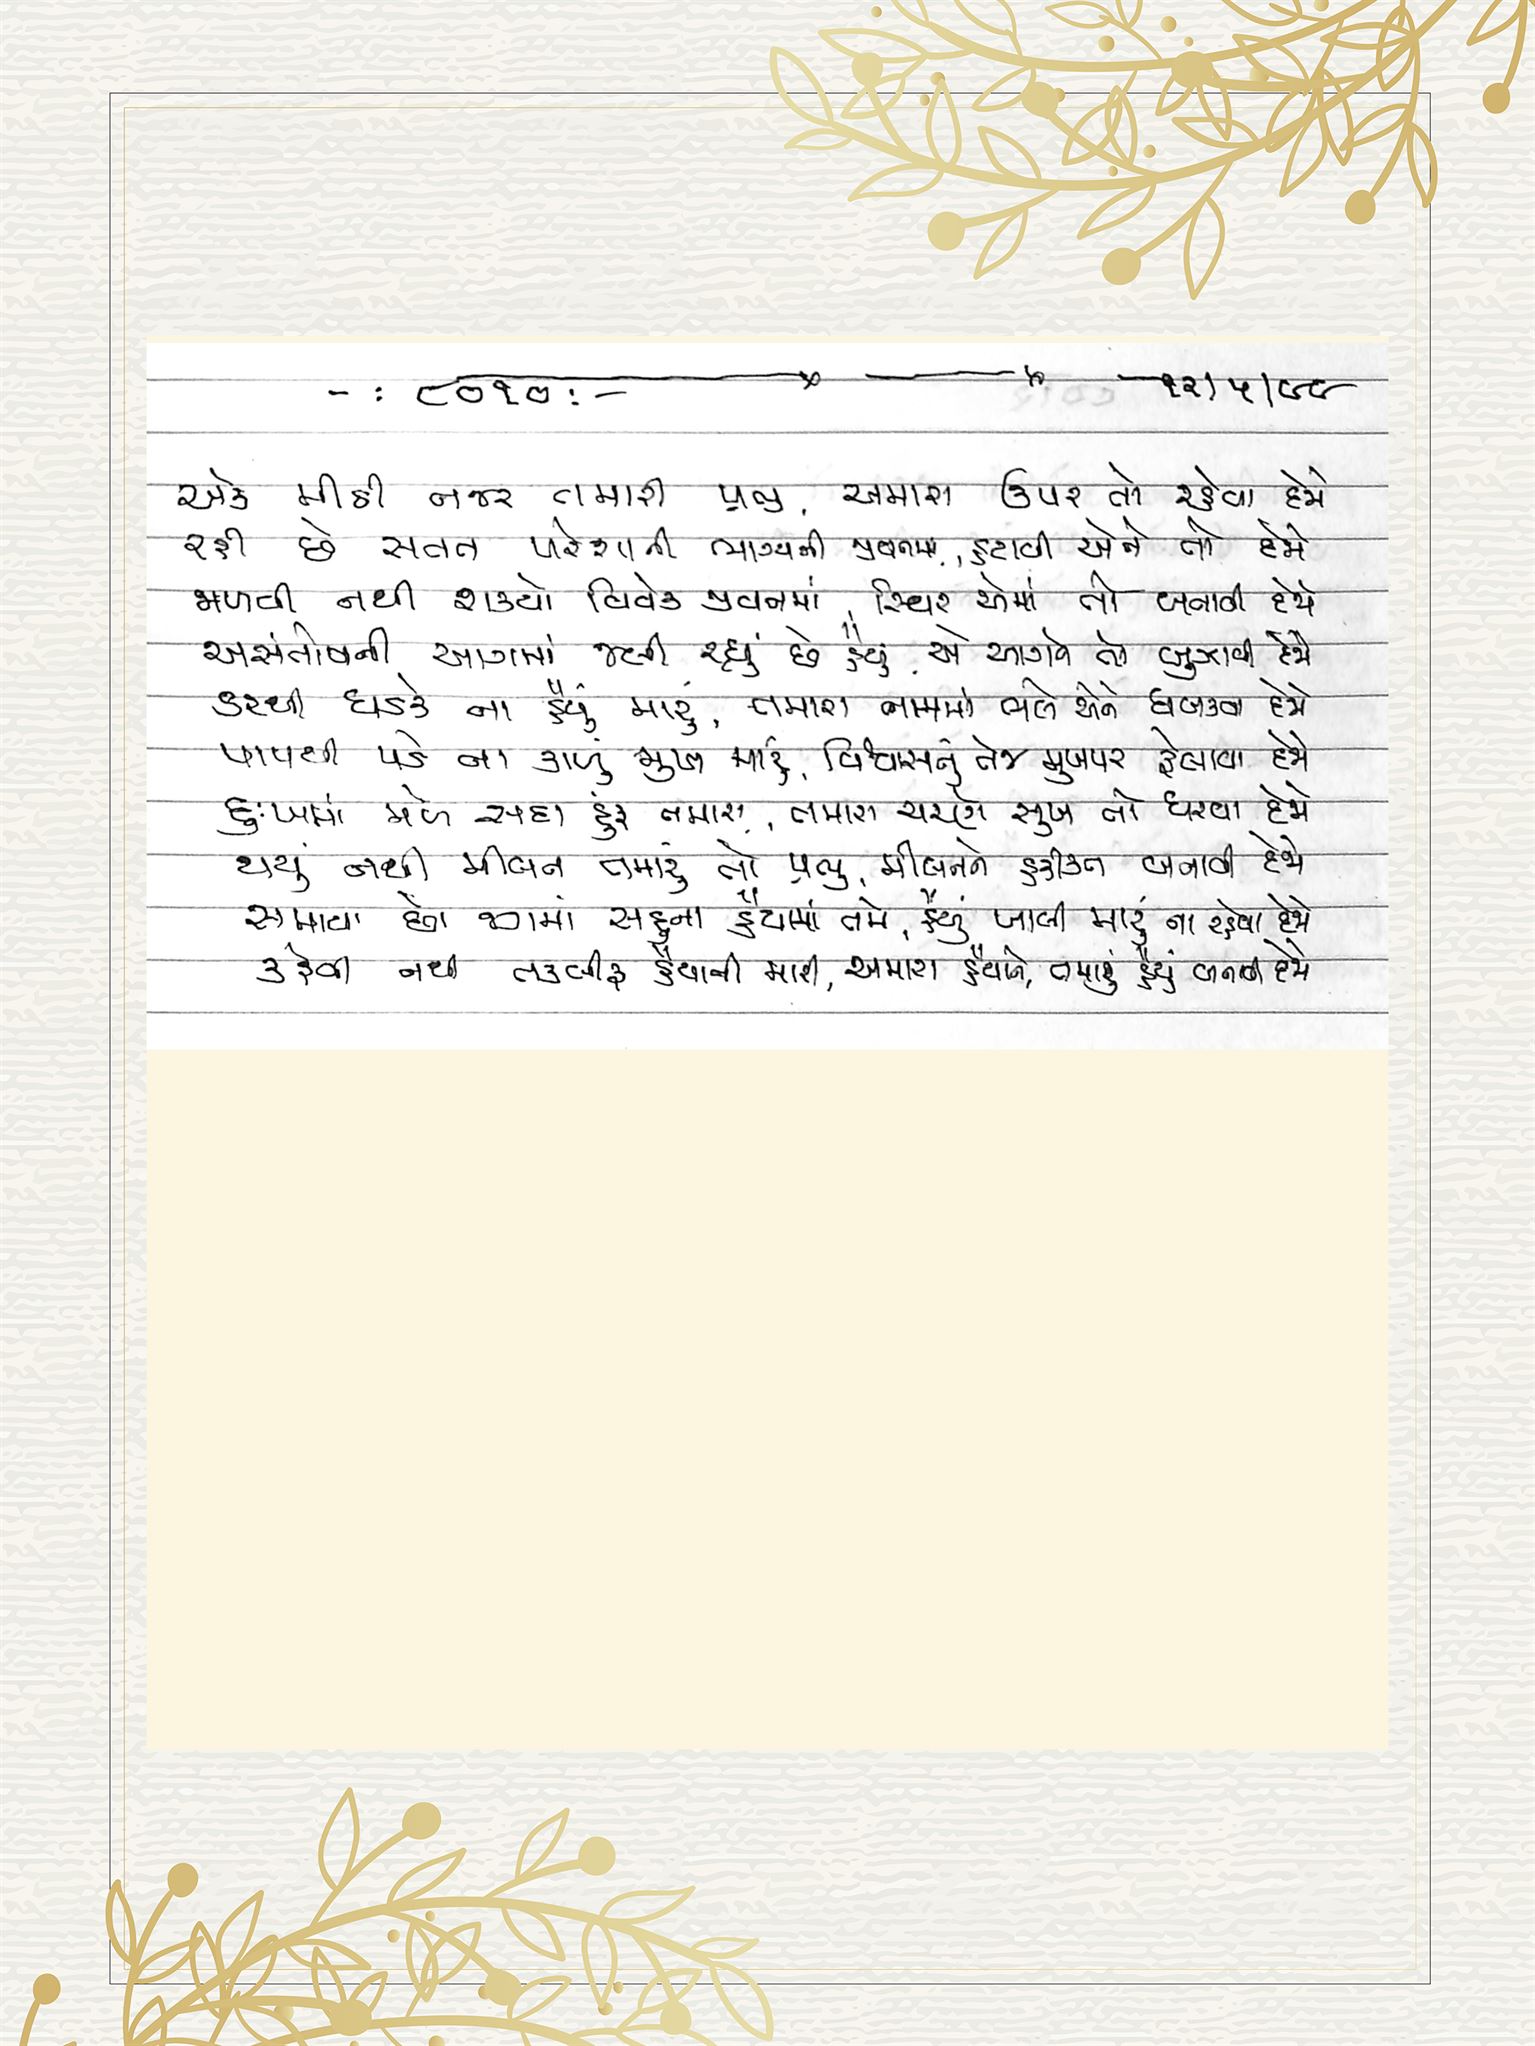 -: ૮૦૧૦ :- ૧૨/૫/૯૯
એક મીઠી નજર તમારી પ્રભુ, અમારા ઉપર તો રહેવા દેજે
રહી છે સતત પરેશાની ભાગ્યની જીવનમાં, હટાવી એને તો દેજે
મળવી નથી શક્યો વિવેક જીવનમાં, સ્થિર એમાં તો બનાવી દેજે
અસંતોષની આગમાં જલી રહ્યું છે હૈયું, એ આગને તો બુઝાવી દેજે
ડરથી ધડકે ના હૈયું મારું, તમારા નામમાં ભલે એને ધબકવા દેજે
પાપથી પડે ના કાળું મુખ મારું, વિશ્વાસનું તેજ મુખપર ફેલાવા દેજે
દુઃખમાં મળે સદા હૂંફ તમારી, તમારા ચરણે સુખ તો ધરવા દેજે
થયું નથી મીલન તમારું તો પ્રભુ, મીલનને હકીકત બનાવી દેજે
સમાવા છો જગમાં સહુના હૈયામાં તમે, હૈયું ખાલી મારું ના રહેવા દેજે
કહેવી નથી તકલીફ હૈયાની મારી, અમારા હૈયાને, તમારું હૈયું બનાવી દેજે